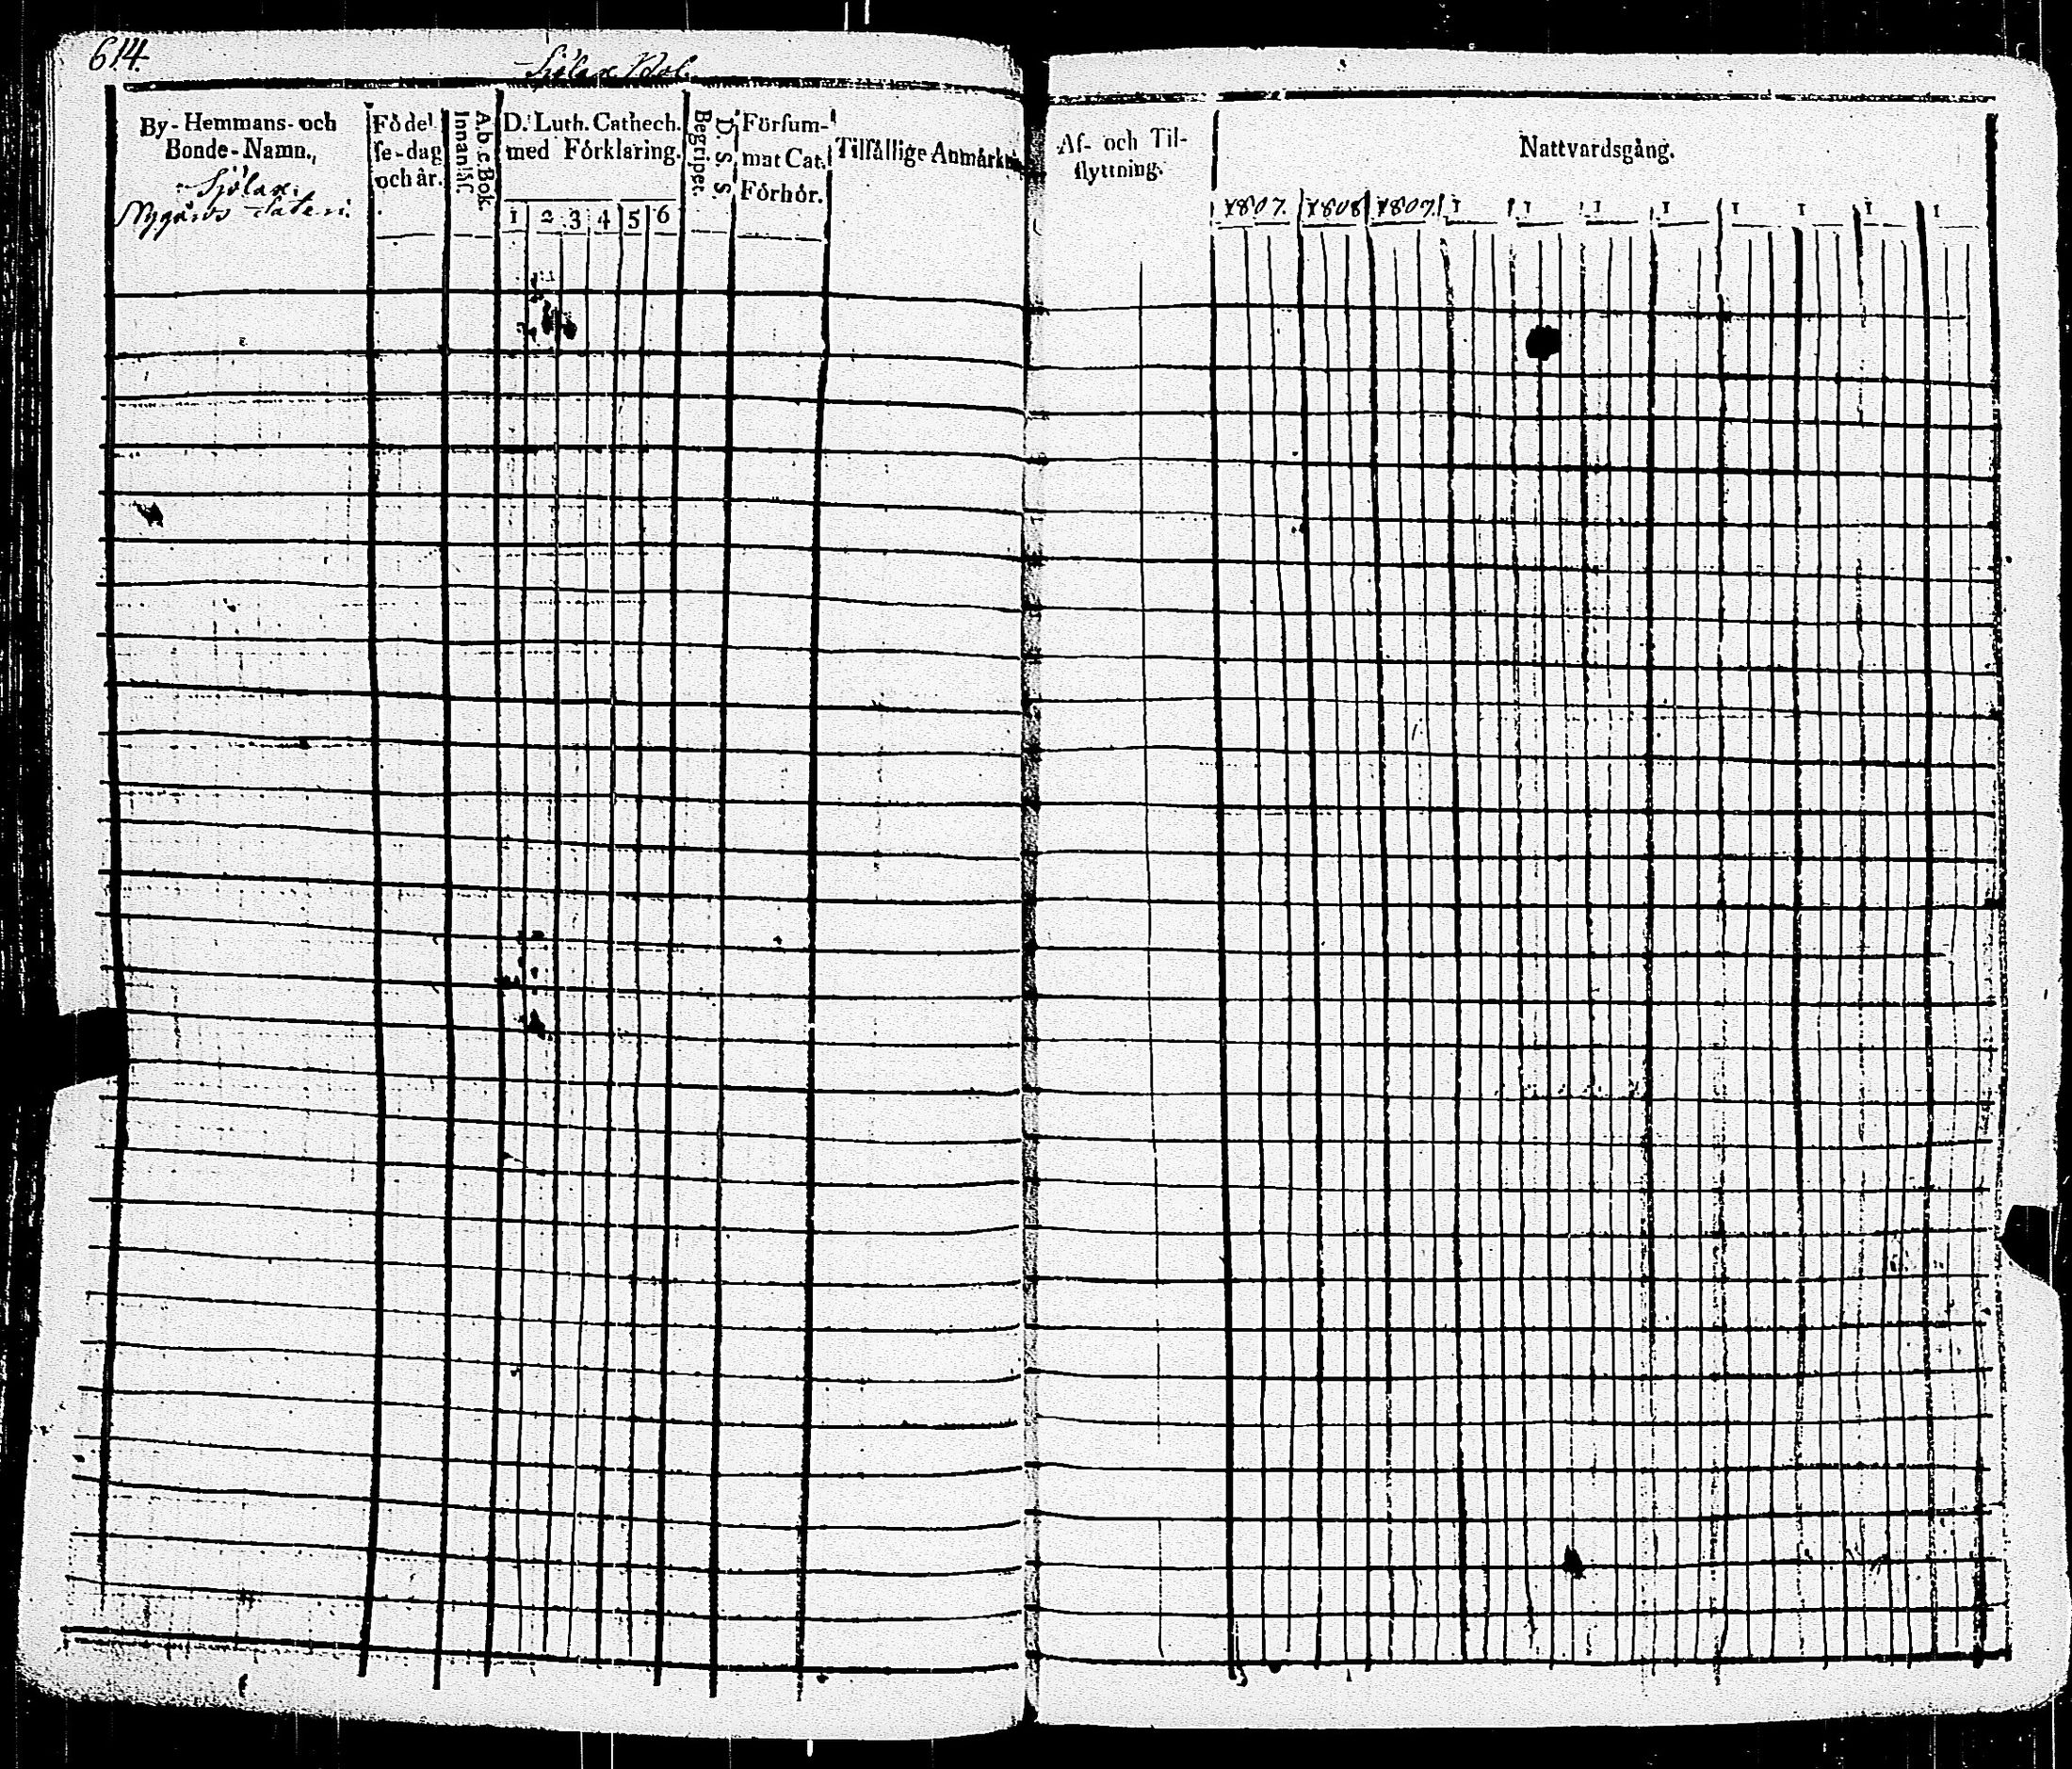 614.
Sjölax Bol.
By-Hemmans-och
Bonde-Namn.
Sjölax.
Nygårds Säteri.
Födel
se-dag
och år.
A.b.c.Bok.
Innanläs.
D. Luth. Cathech.
med Förklaring.
1 2 3 4 5 6
D. S. S.
Begriper.
Försum-
mat Cat.
Förhör.
Tilfällige Anmärkn
Af- och Til-
flyttning.
Nattvardsgång.
1807. 1808 1809. 1 1 1 1 1 1 1 1